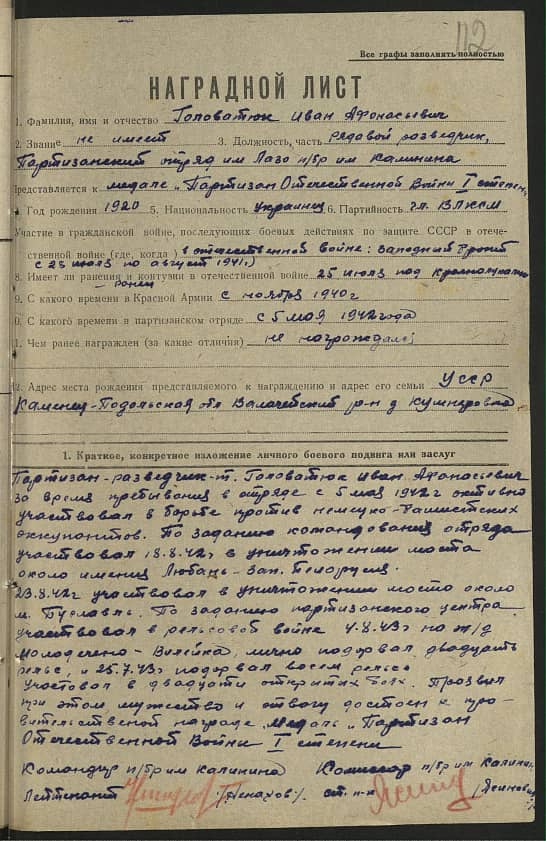 112
Все графы заполнять полностью
НАГРАДНОЙ ЛИСТ
1. Фамилия, имя и отчество Головатюк Иван Афонасьевич
2. Звание не имеет 3. Должность, часть рядовой разведчик,
Партизанский отряд им Лазо п/бр им Калинина
Представляется к медале „Партизан Отечественной Войны I степен,
Год рождения 1920 5. Национальность украинец 6. Партийность чл. ВЛКСМ
Участие в гражданской войне, последующих боевых действиях по защите СССР в отече-
ственной войне (где, когда) в отечественной войне: Западный Фронт
с 23 июля по август 1941г.)
8. Имеет ли ранения и контузии в отечественной войне ранен 25 июля под
9. С какого времени в Красной Армии с ноября 1940г
0. С какого времени в партизанском отряде с 5 мая 1942 года
1. Чем ранее награжден (за какие отличия) не награждался
2. Адрес места рождения представляемого к награждению и адрес его семьи УССР
Каменец-Подольская обл Валачебский р-н д Кушнеровка
1. Краткое, конкретное изложение личного боевого подвига или заслуг
Партизан-разведчик-т. Головатюк Иван Афонасьевич
за время пребывания в отряде с 5 мая 1942г активно
участвовал в борьбе против немецко-фашистских
оккупантов. По заданию командования отряда
участвовал 18.8.42г в уничтожении моста
около имения Любань-зап. Белорусия.
23.8.42г участвовал в уничтожении моста около
м. Буславль. По заданию партизанского центра
участвовал в рельсовой войне 4.8.43г на ж/д
Молодечено-Вилейка, лично подорвал двадцать
рельс, и 25.7.43г подорвал восем рельс
Участовал в двадцати открытих боях. Проявил
при этом мужество и отвагу достоен к пра-
вительственой награде медаль „Партизан
Отечественной Войны I степени
Командир п/бр им Калинина Комиссар п/бр им Калинин
Лейтенант /Монахов/. ст. п-к /Ясинович